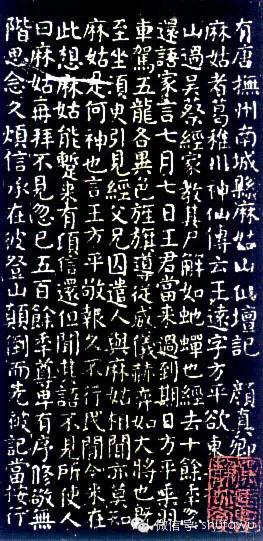 有唐撫州南城縣麻姑山仙壇記 顏真卿
麻姑者葛稚川神仙傳云王遠字方平欲東
山過吳蔡經家教其尸解如虵蟬也經去十餘年忽
還語家言七月七日王君當來過到期日方平乘羽
車駕五龍各異色旌旗導從威儀赫弈如大將也既
至坐須臾引見經父兄因遣人與麻姑相聞亦莫知
麻姑是何神也言王方平敬報久不行民間今來在
此想麻姑能蹔來有頃信還但聞其語不見所使人
曰麻姑再拜不見忽已五百餘年尊卑有序修敬無
階思念久煩信承在彼登山顛倒而先被記當按行
微信号: shufawu